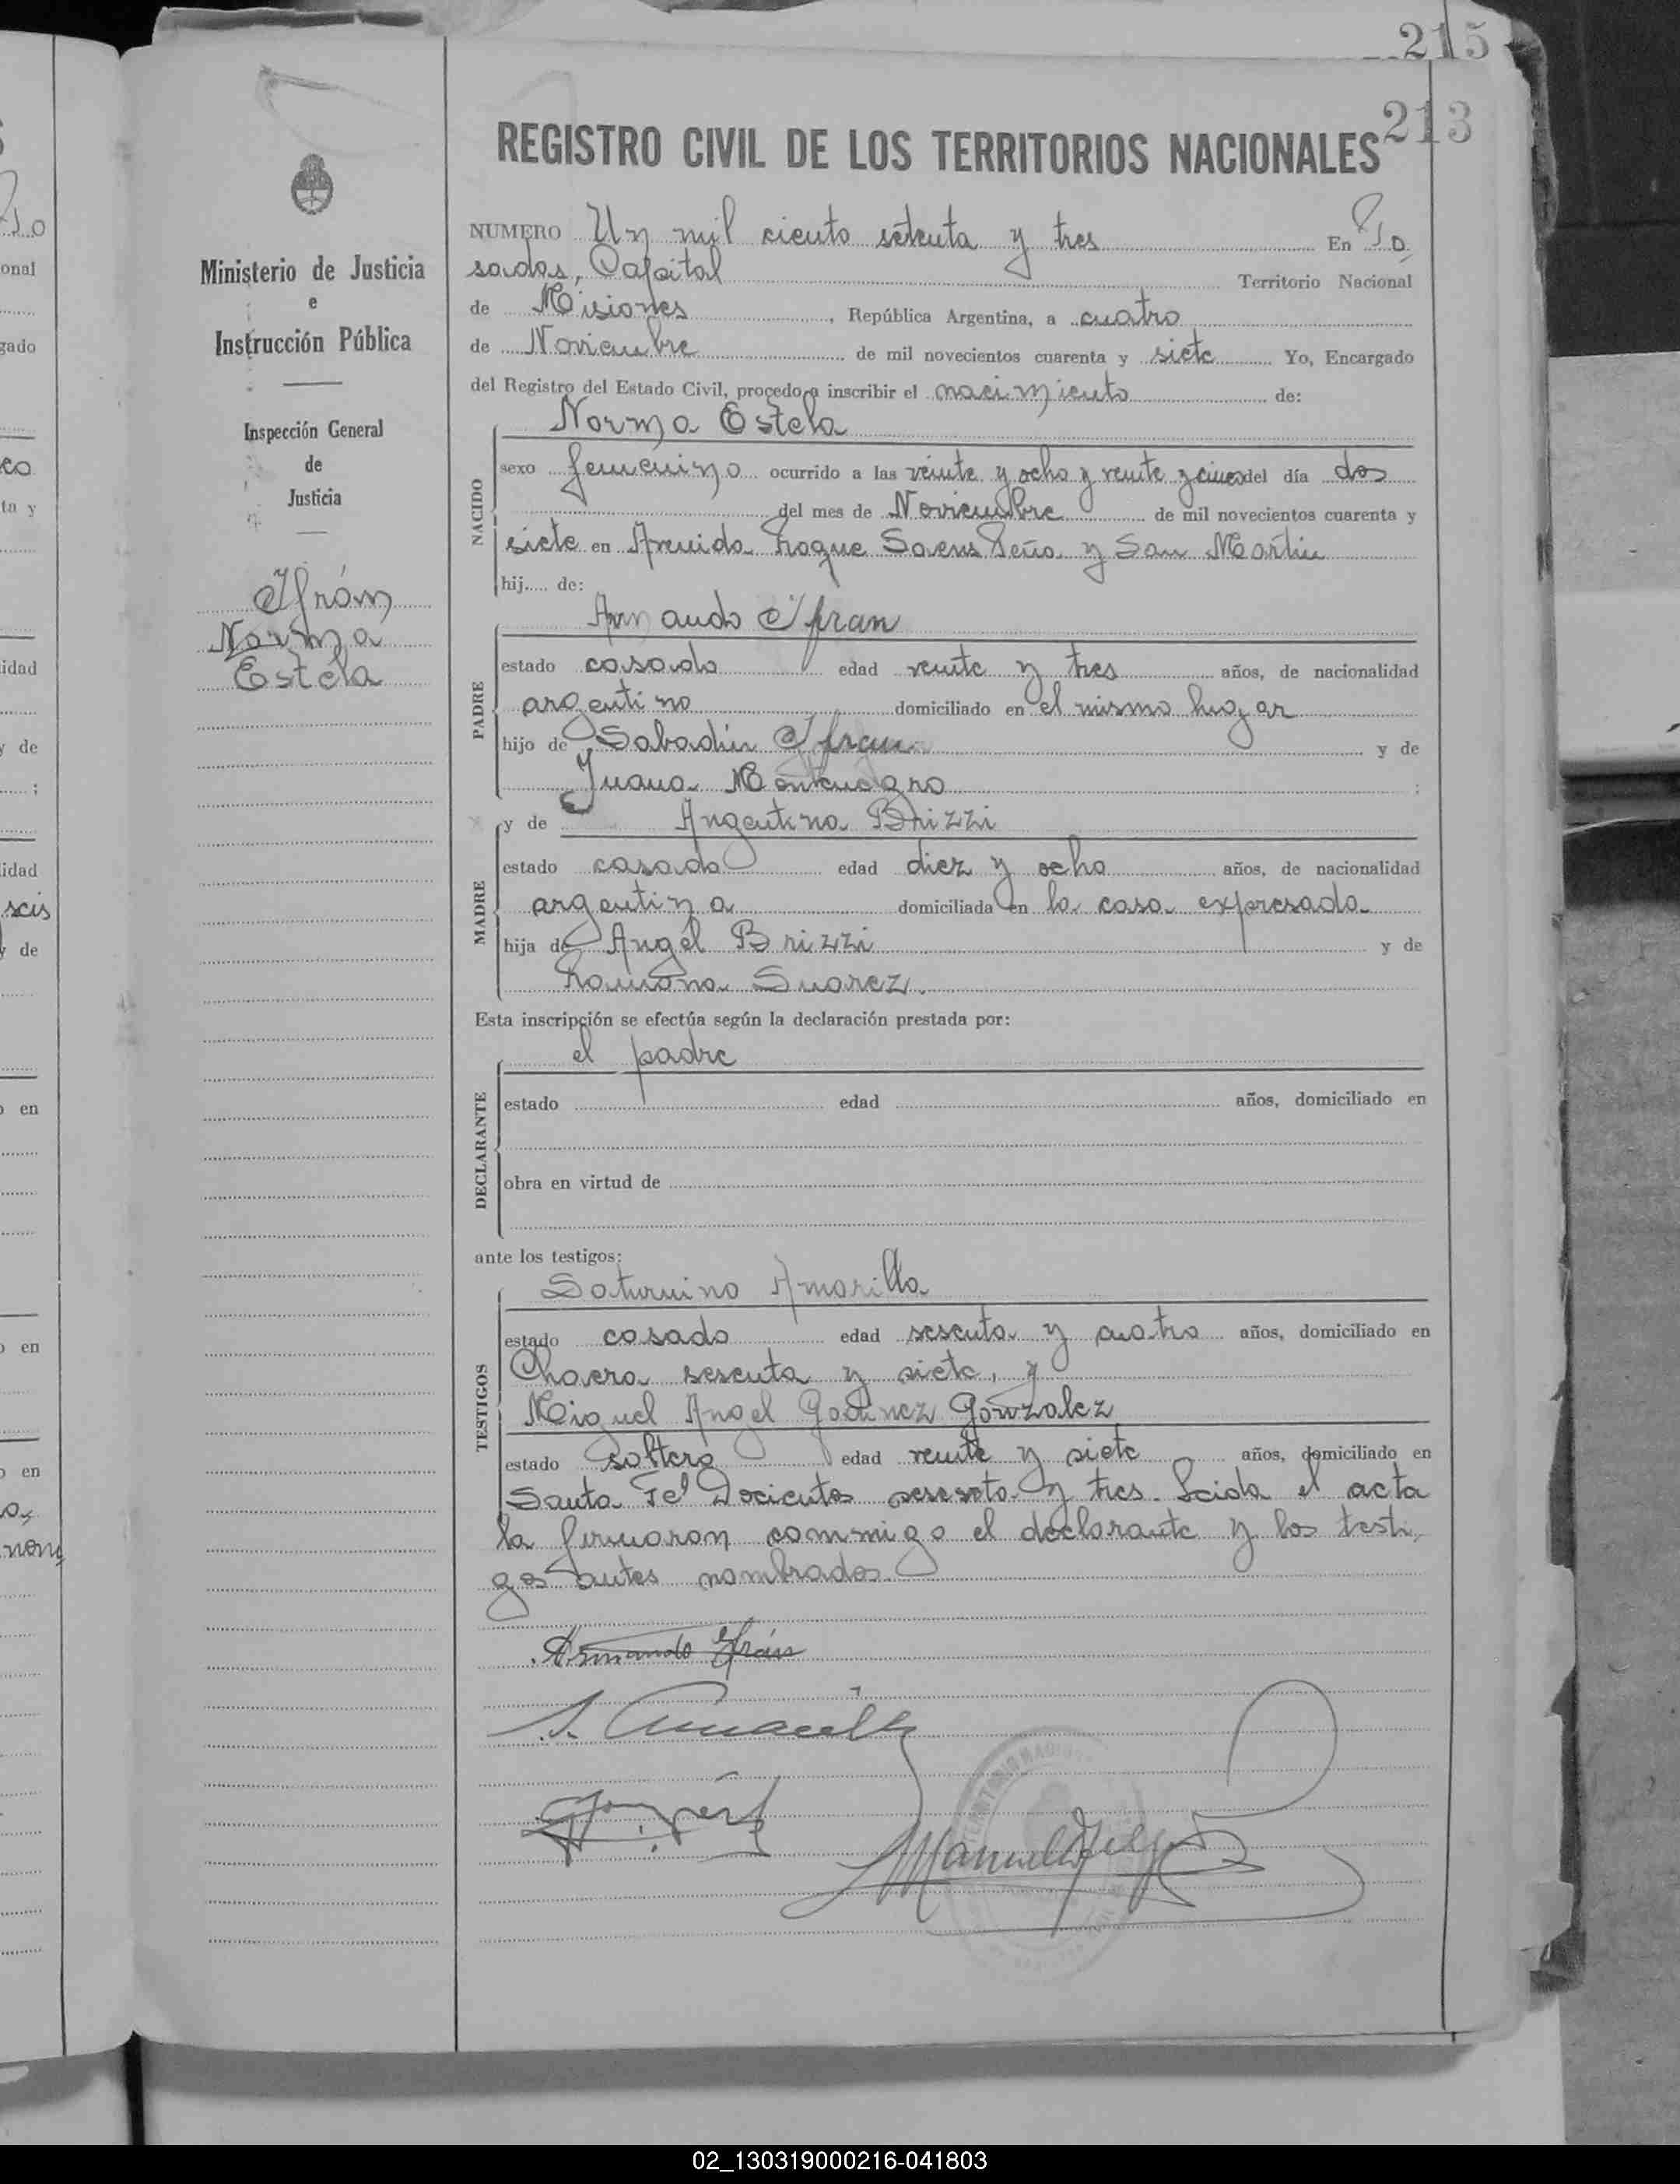 215
213
REGISTRO CIVIL DE LOS TERRITORIOS NACIONALES
Ministerio de Justicia
e
Instrucción Pública
Inspección General
de
Justicia
Ifrán
Norma
Estela
NUMERO Un mil ciento setenta y tres En Po,
sadas, Capital Territorio Nacional
de Misiones, República Argentina, a cuatro
de Noviembre de mil novecientos cuarenta y siete Yo, Encargado
del Registro del Estado Civil, procedo a inscribir el nacimiento de:
NACIDO
Norma Estela
sexo femenino ocurrido a las veinte y ocho y veinte y cinco del día dos
del mes de Noviembre de mil novecientos cuarenta y
siete en Avenida Roque Saens Peña y San Martin
hij.... de:
PADRE
Armando Ifran
estado casado edad veinte y tres años, de nacionalidad
argentino domiciliado en el mismo hogar
hijo de Sabadin Ifran y de
Juana Montenegro ;
MADRE
y de Argentina Brizzi
estado casada edad diez y ocho años, de nacionalidad
argentina domiciliada en la casa expresada
hija de Angel Brizzi y de
Ramona Suarez.
Esta inscripción se efectúa según la declaración prestada por:
DECLARANTE
el padre
estado edad años, domiciliado en
obra en virtud de
ante los testigos:
TESTIGOS
Saturnino Amarilla
estado casado edad sesenta y cuatro años, domiciliado en
Chacra sesenta y siete, y
Miguel Angel Gonzalez
estado soltero edad veinte y siete años, domiciliado en
Santa Fe Docientos sesenta y tres. Leida el acta
la firmaron conmigo el declarante y los testi,
gos antes nombrados.
Armando Ifrán
S. Amarilla
Manuel
02_130319000216-041803